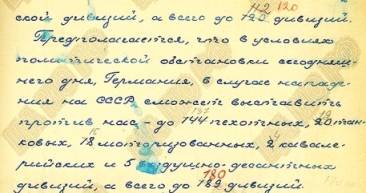 112 120
ской дивизий, а всего до 120 дивизий.
Предполагается, что в условиях
политической обстановки сегодняш-
него дня, Германия, в случае нападе-
ния на СССР, сможет выставить
137 19
против нас – до 144 пехотных, 20 тан-
15 4
ковых, 18 моторизованных, 2 кавале-
рийских и 5 воздушно-десантных
180
дивизий, а всего до 189 дивизий.